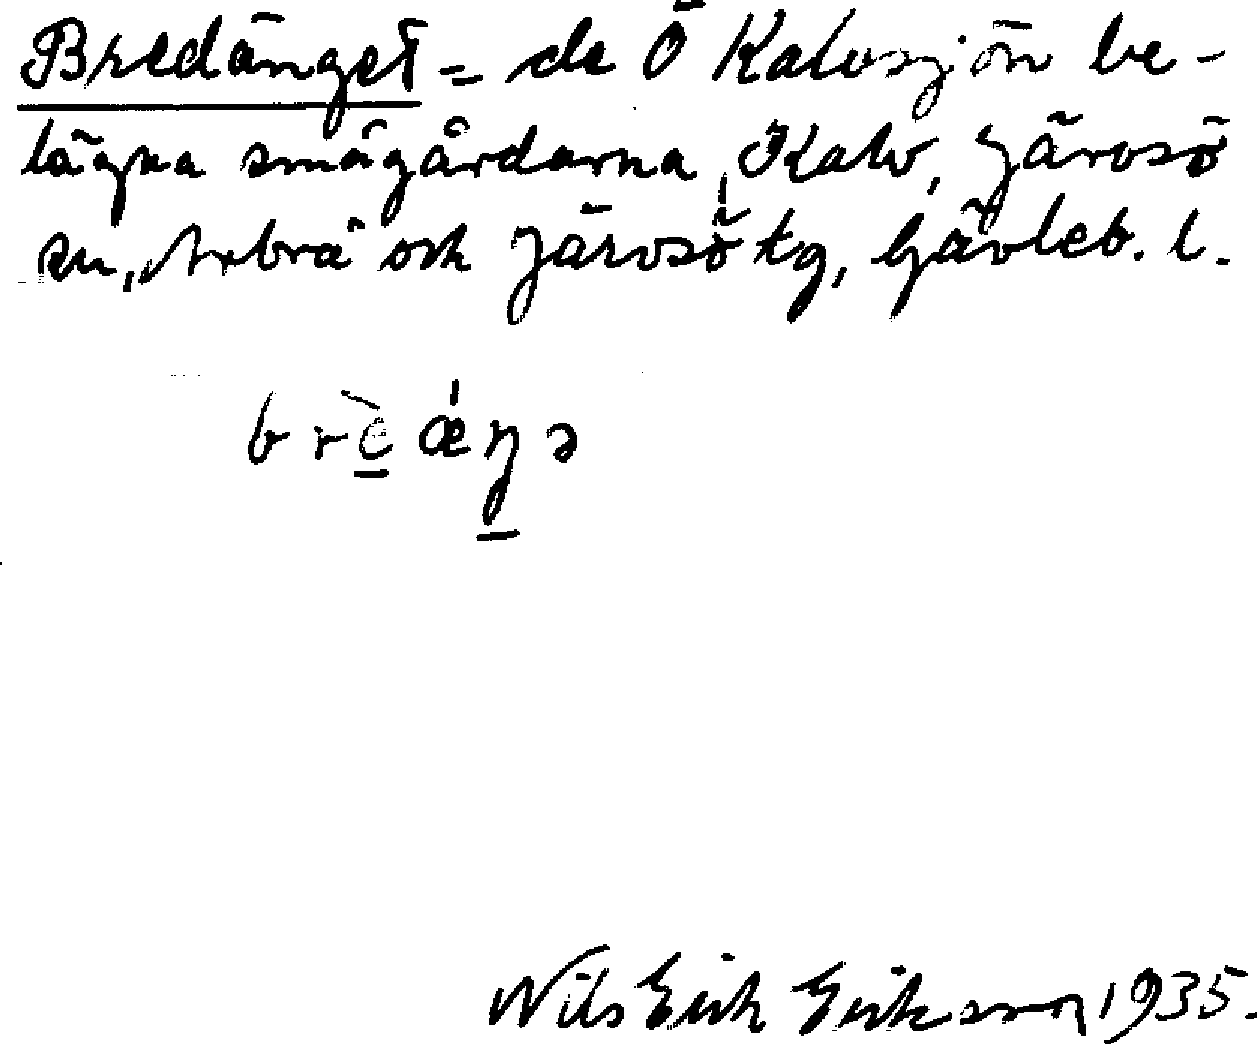 Bredänget = de Ö Kalvsjön be-
lägna smågårdarna i Kalv, Järvsö
sn, Arbrå och Järvsö tg, Gävleb. l.
brè̱ ǽŋ̱ə
Nils Erik Eriksson 1935.